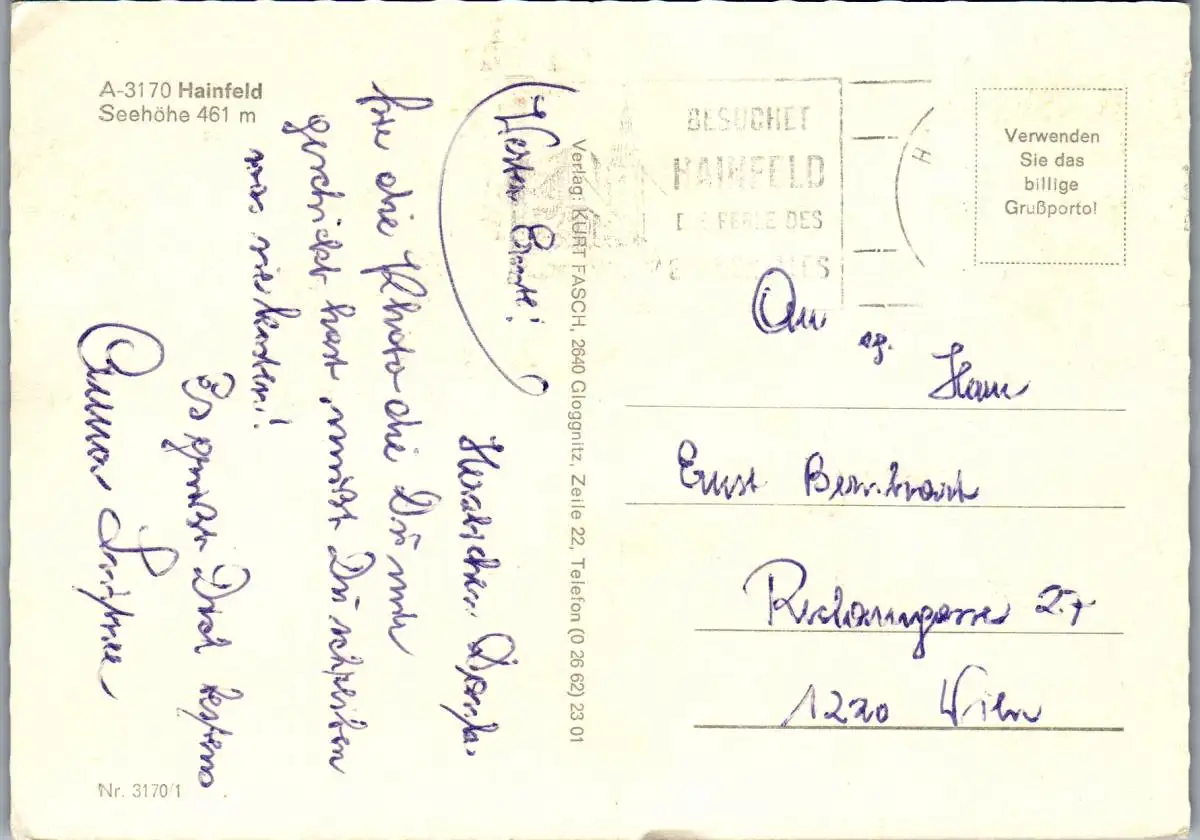 A-3170 Hainfeld
Seehöhe 461 m
Werter Ernst!
Herzlichen Dank
für die Photo die Du mir
geschickt hast, mußt Du schreiben
was sie kosten!
Es grüßt Dich bestens
Nr. 3170/1
Verlag: KURT FASCH, 2640 Gloggnitz, Zeile 22, Telefon (0 26 62) 23 01
BESUCHET
HAINFELD
DIE PERLE DES
H
Verwenden
Sie das
billige
Grußporto!
An
Herrn
Ernst Bernhart
27
1220 Wien